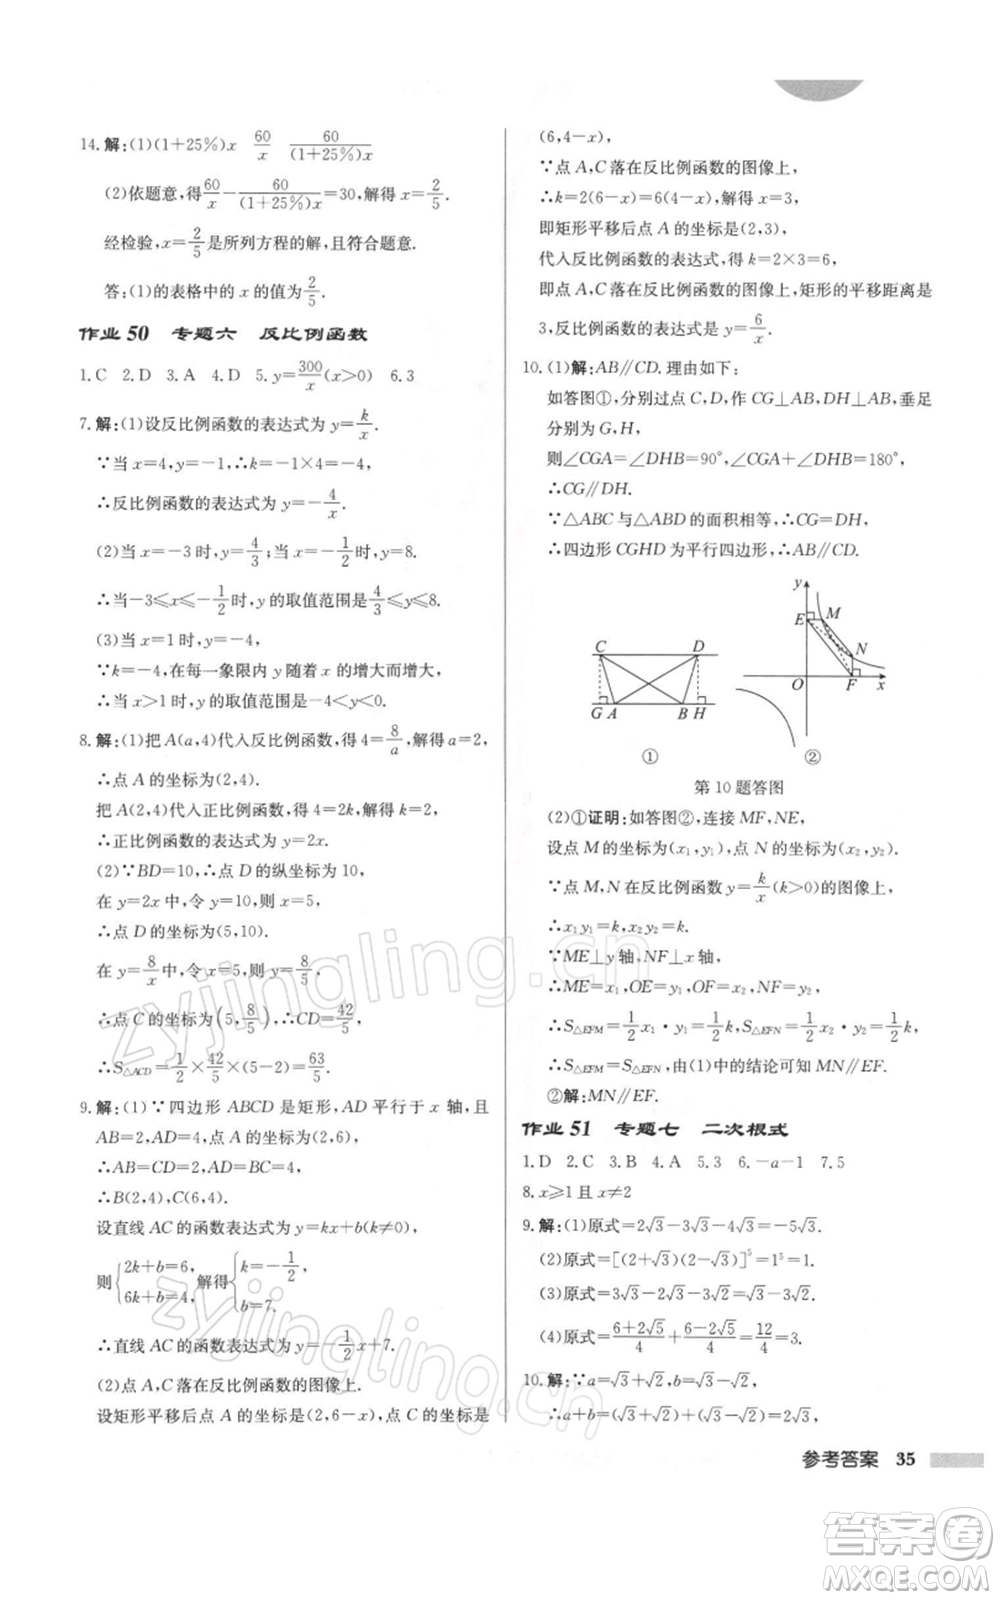 14. 解:(1)(1+25%)x  60/x  60/((1+25%)x)
(2)依题意,得60/x−60/((1+25%)x)=30,解得 x=2/5.
经检验,x=2/5是所列方程的解,且符合题意.
答:(1)的表格中的 x 的值为2/5.
作业50 专题六 反比例函数
1.C 2.D 3.A 4.D 5.y=300/x(x>0) 6.3
7. 解:(1)设反比例函数的表达式为 y=k/x.
∵当 x=4,y=−1,∴k=−1×4=−4,
∴反比例函数的表达式为 y=−4/x.
(2)当 x=−3 时,y=4/3;当 x=−1/2时,y=8.
∴当−3≤x≤−1/2时,y 的取值范围是4/3≤y≤8.
(3)当 x=1 时,y=−4,
∵k=−4,在每一象限内 y 随着 x 的增大而增大,
∴当 x>1 时,y 的取值范围是−4<y<0.
8. 解:(1)把 A(a,4)代入反比例函数,得 4=8/a,解得 a=2,
∴点 A 的坐标为(2,4).
把 A(2,4)代入正比例函数,得 4=2k,解得 k=2,
∴正比例函数的表达式为 y=2x.
(2)∵BD=10,∴点 D 的纵坐标为 10,
在 y=2x 中,令 y=10,则 x=5,
∴点 D 的坐标为(5,10).
在 y=8/x中,令 x=5,则 y=8/5,
∴点 C 的坐标为(5,8/5),∴CD=42/5,
∴S△ACD=1/2×42/5×(5−2)=63/5.
9. 解:(1)∵四边形 ABCD 是矩形,AD 平行于 x 轴,且
AB=2,AD=4,点 A 的坐标为(2,6),
∴AB=CD=2,AD=BC=4,
∴B(2,4),C(6,4).
设直线 AC 的函数表达式为 y=kx+b(k≠0),
则{2k+b=6, 6k+b=4, 解得{k=−1/2, b=7.
∴直线 AC 的函数表达式为 y=−1/2x+7.
(2)点 A,C 落在反比例函数的图像上.
设矩形平移后点 A 的坐标是(2,6−x),点 C 的坐标是
(6,4−x),
∵点 A,C 落在反比例函数的图像上,
∴k=2(6−x)=6(4−x),解得 x=3,
即矩形平移后点 A 的坐标是(2,3),
代入反比例函数的表达式,得 k=2×3=6,
即点 A,C 落在反比例函数的图像上,矩形的平移距离是
3,反比例函数的表达式是 y=6/x.
10. (1)解:AB∥CD.理由如下:
如答图①,分别过点 C,D,作 CG⊥AB,DH⊥AB,垂足
分别为 G,H,
则∠CGA=∠DHB=90°,∠CGA+∠DHB=180°,
∴CG∥DH.
∵△ABC 与△ABD 的面积相等,∴CG=DH,
∴四边形 CGHD 为平行四边形,∴AB∥CD.
C D G A B H
①
y E M N O F x
②
第 10 题答图
(2)①证明:如答图②,连接 MF,NE,
设点 M 的坐标为(x₁,y₁),点 N 的坐标为(x₂,y₂).
∵点 M,N 在反比例函数 y=k/x(k>0)的图像上,
∴x₁y₁=k,x₂y₂=k.
∵ME⊥y 轴,NF⊥x 轴,
∴ME=x₁,OE=y₁,NF=y₂,OF=x₂,
∴S△EFM=1/2x₁·y₁=1/2k,S△EFN=1/2x₂·y₂=1/2k,
∴S△EFM=S△EFN,由(1)中的结论可知 MN∥EF.
②解:MN∥EF.
作业51 专题七 二次根式
1.D 2.C 3.B 4.A 5.3 6.−a−1 7.5
8. x≥1 且 x≠2
9. 解:(1)原式=2√3−3√3−4√3=−5√3.
(2)原式=[(2+√3)(2−√3)]⁵=1⁵=1.
(3)原式=3√3−2√3+√3=2√3.
(4)原式=(6+2√5)/4+(6−2√5)/4=12/4=3.
10. 解:∵a=√3+√2,b=√3−√2,
∴a+b=(√3+√2)+(√3−√2)=2√3,
参考答案 35
zyjingling.cn
zyjingling.cn
答案卷
MXQE.COM